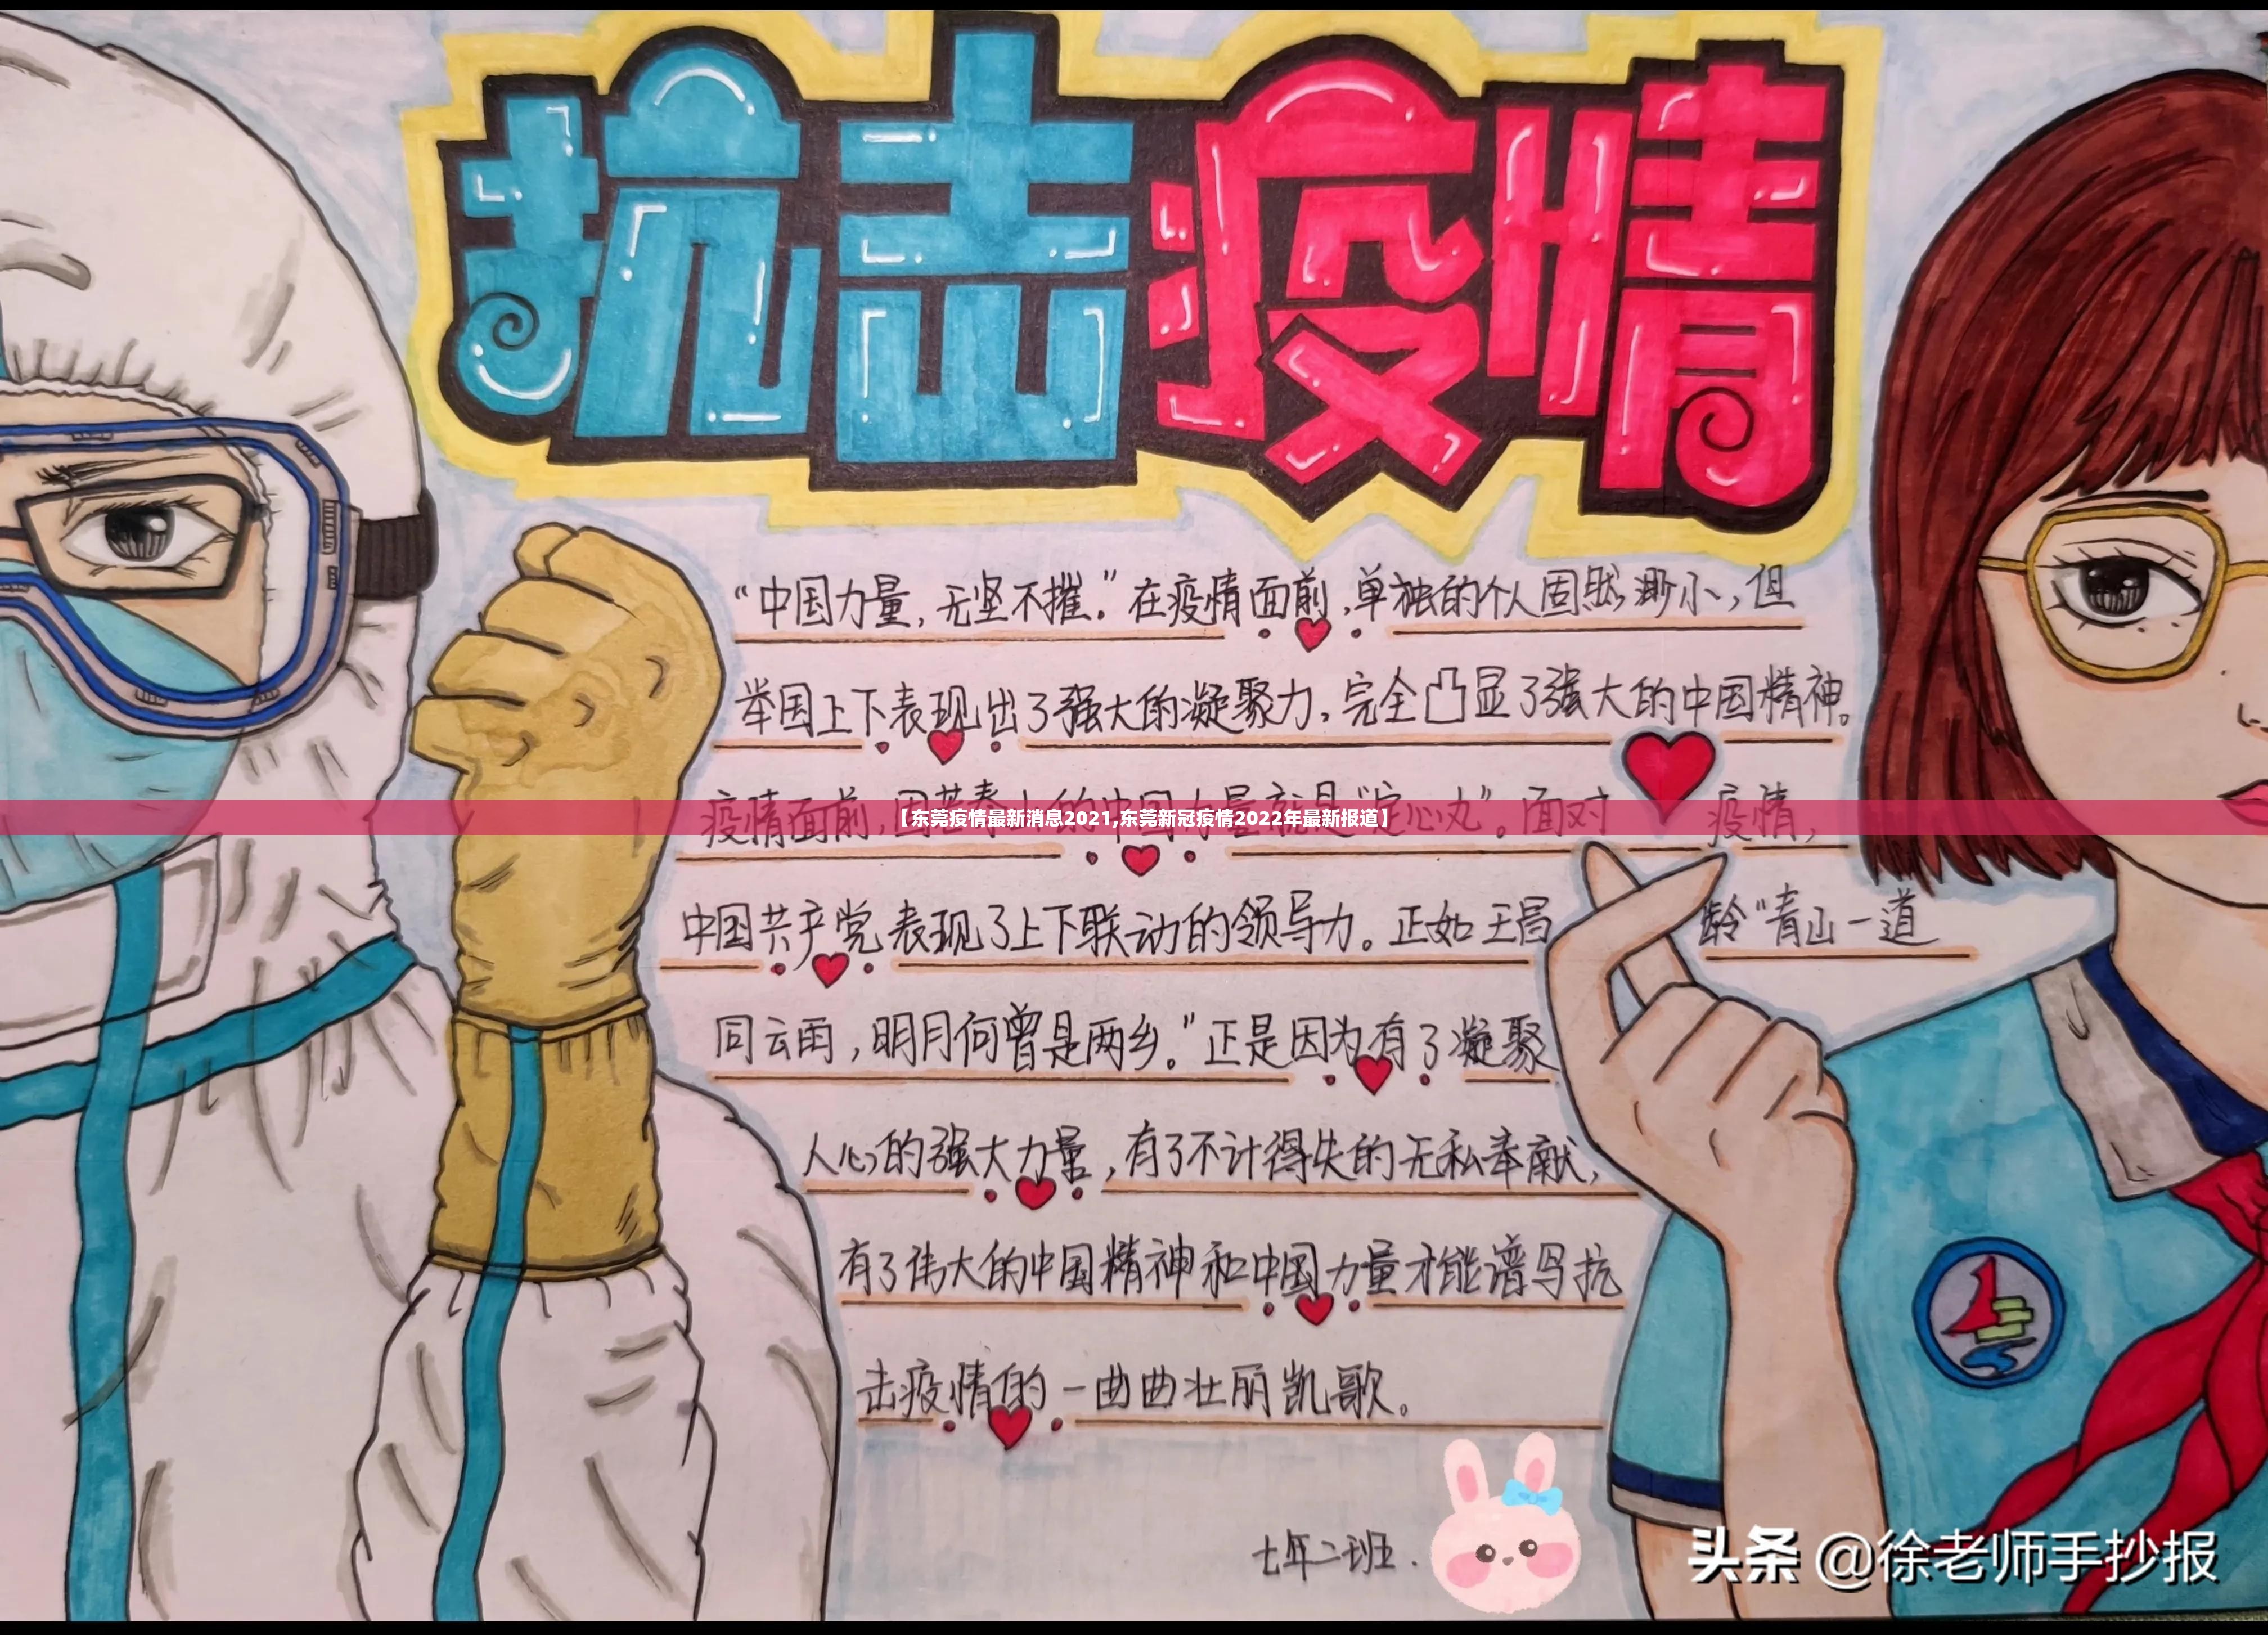 抗击疫情
“中国力量，无坚不摧。”在疫情面前，单独的个人固然渺小，但
举国上下表现出了强大的凝聚力，完全凸显了强大的中国精神。
疫情面前，因苦奋斗的中国力量就是“定心丸”。面对 疫情，
【东莞疫情最新消息2021,东莞新冠疫情2022年最新报道】
中国共产党表现了上下联动的领导力。正如王昌 龄“青山一道
同云雨，明月何曾是两乡。”正是因为有了凝聚
人心的强大力量，有了不计得失的无私奉献，
有了伟大的中国精神和中国力量才能谱写抗
击疫情的一曲曲壮丽凯歌。
七年二班.
头条 @徐老师手抄报